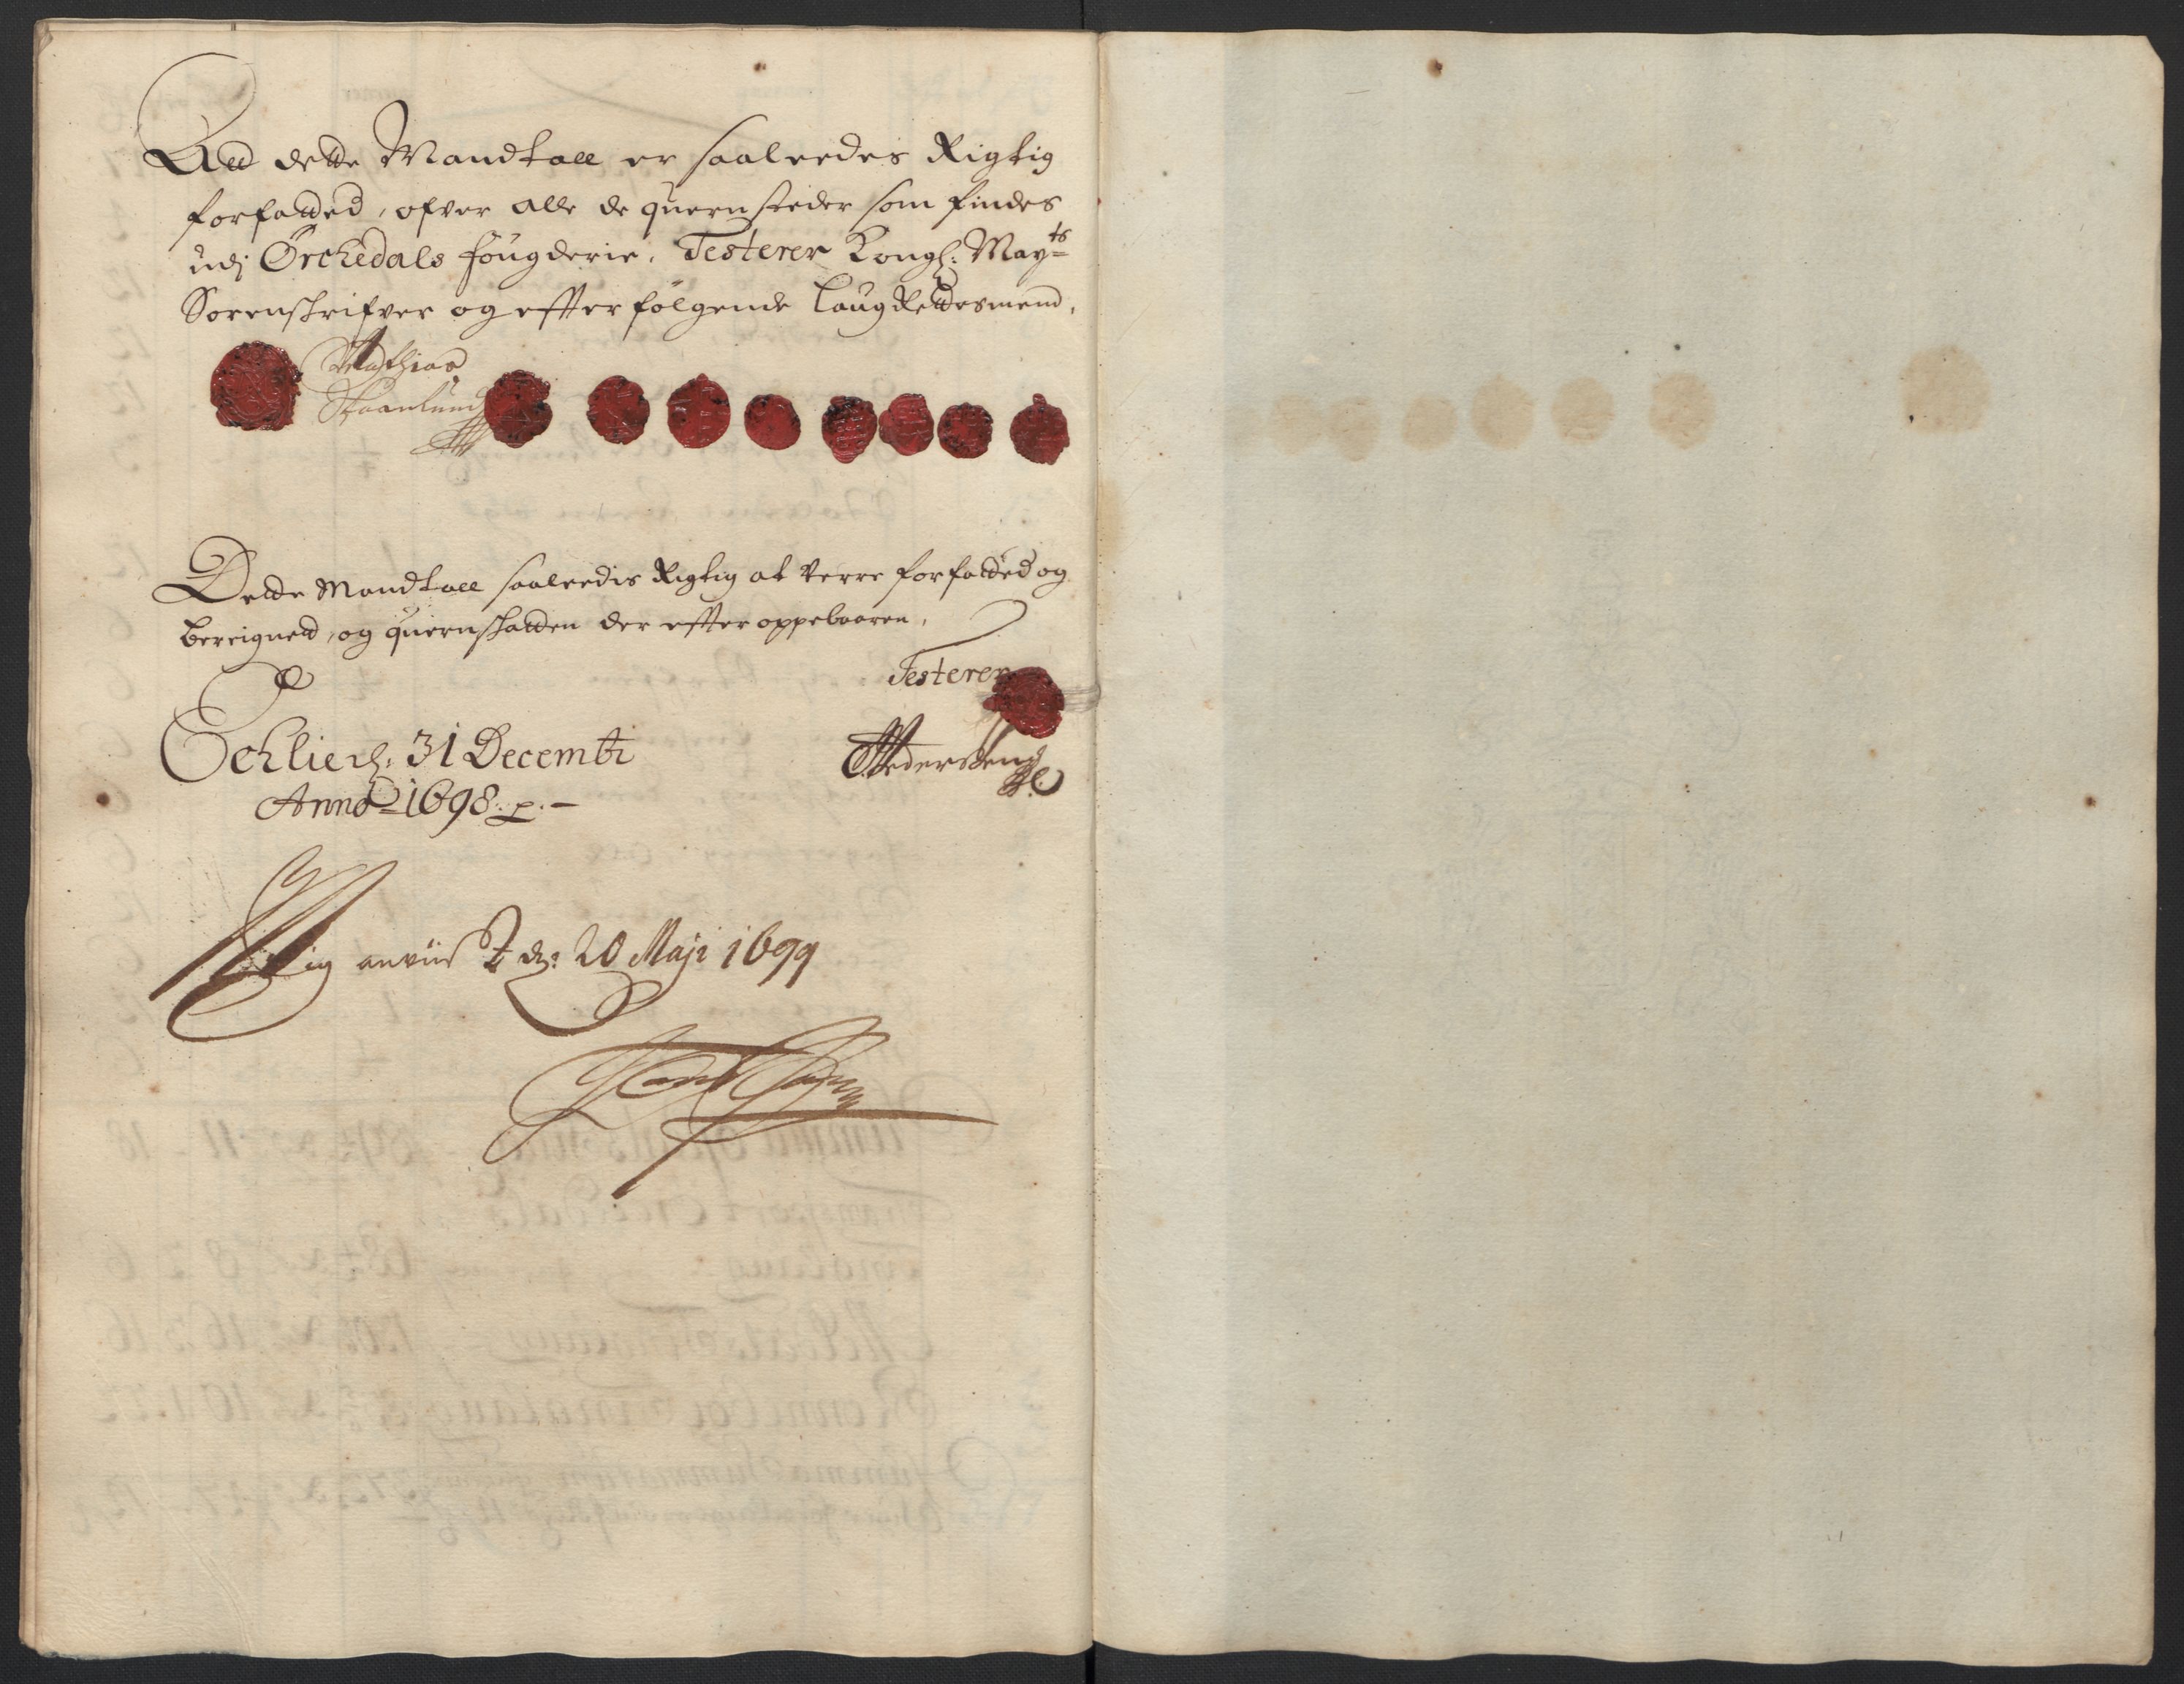 Att dette Mandtall er saaleedes Rigtig
forfatted, ofver alle de quernsteder som findes
udj Orchedals fougderie, Testerer Kongl: May ts
Sorenskrifver og efterfølgende LaugRettesmend,
Mathias
Skaanlund
Dette Mandtall saaleedis Rigtig at verre forfatted og
bereigned, og quernskatten der efter oppebaaren,
Testerer
Echlie d: 31 Decembr
Anno 1698 p.
Pedersen
Rigtig anviist d: 20 Maji 1699